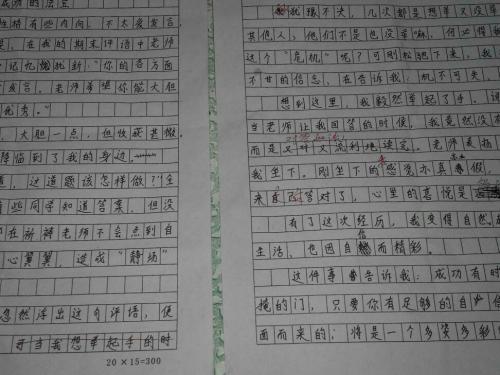 成功的法宝
性格有些内向,不太爱发言
是,在我的期末评语中老师
记忆犹新:"你的各方面
发言。老师希望你能大胆
优秀。"
大胆一点,但收获甚微。
降临到了我的身边
道,这道题该怎样做?"全
有些同学知道答案,但没
都在祈祷老师不会点到自
心翼翼,造成"静场"
忽然浮出这句评语,便
可当我想举起手的时
20×15=300
机不失,几次都是想举又没举
其他人,他们不是也没举嘛,何必得
这个"危机"呢?可刚松驰下来,我
不甘的信念,在告诉我:机不可失,
想到这里,我毅然举起了手。
当老师让我回答的时候,我竟然没有
而是又对又流利地读完。老师表扬
我坐下。刚坐下的感觉亦真亦假,
来自己答对了,心里的喜悦是
有了这次经历,我变得自然
生活,也因自信而精彩。
这件事告诉我:成功有时
掩的门,只要你有足够的自信
面而来的,将是一个多姿多彩